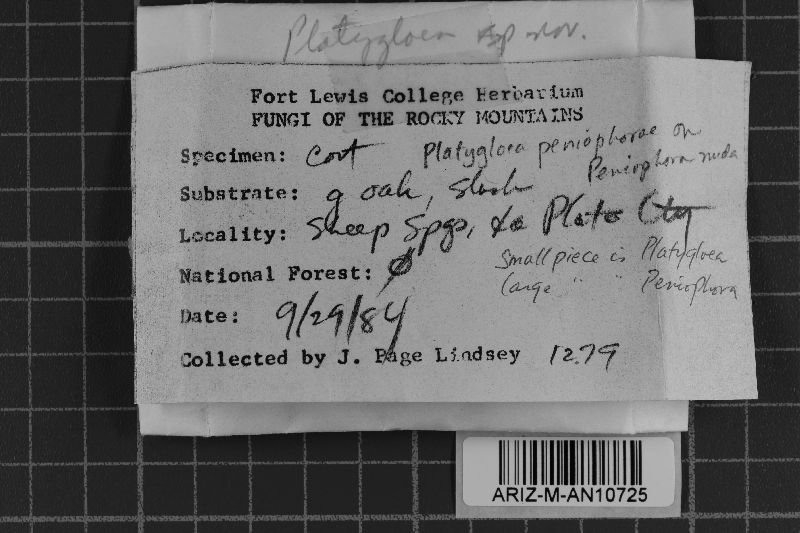 Platygloea sp nov.
Fort Lewis College Herbarium
FUNGI OF THE ROCKY MOUNTAINS
Specimen: Cort Platygloea peniophorae on
Peniophora nuda
Substrate: g oak, slash
Locality: Sheep Spgs, La Plata Cty
Small piece is Platygloea
large " " Peniophora
National Forest: Ø
Date: 9/29/84
Collected by J. Page Lindsey 1279
ARIZ-M-AN10725